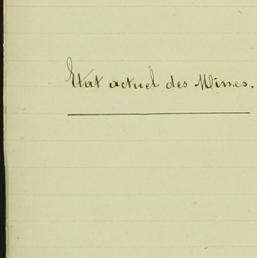 Etat actuel des Mines.